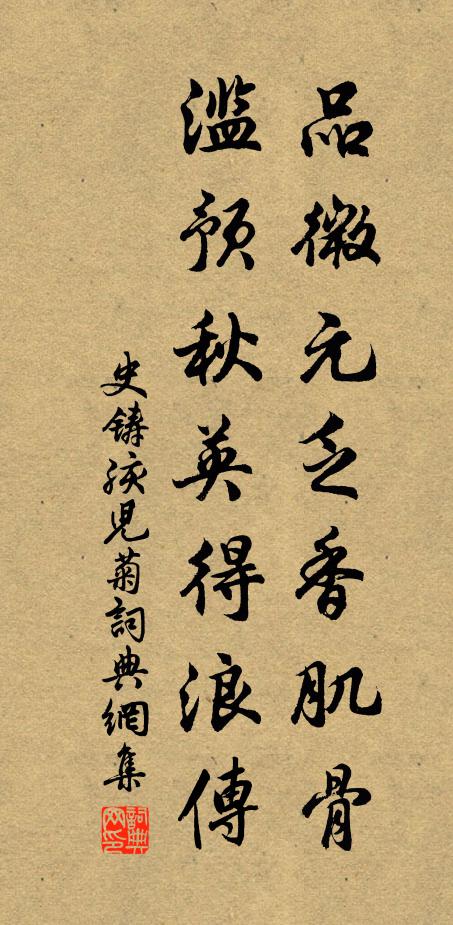 品微元乏香肌骨
濫預秋英得浪傳
史鑄孩兒菊詞典網集
詞典網印